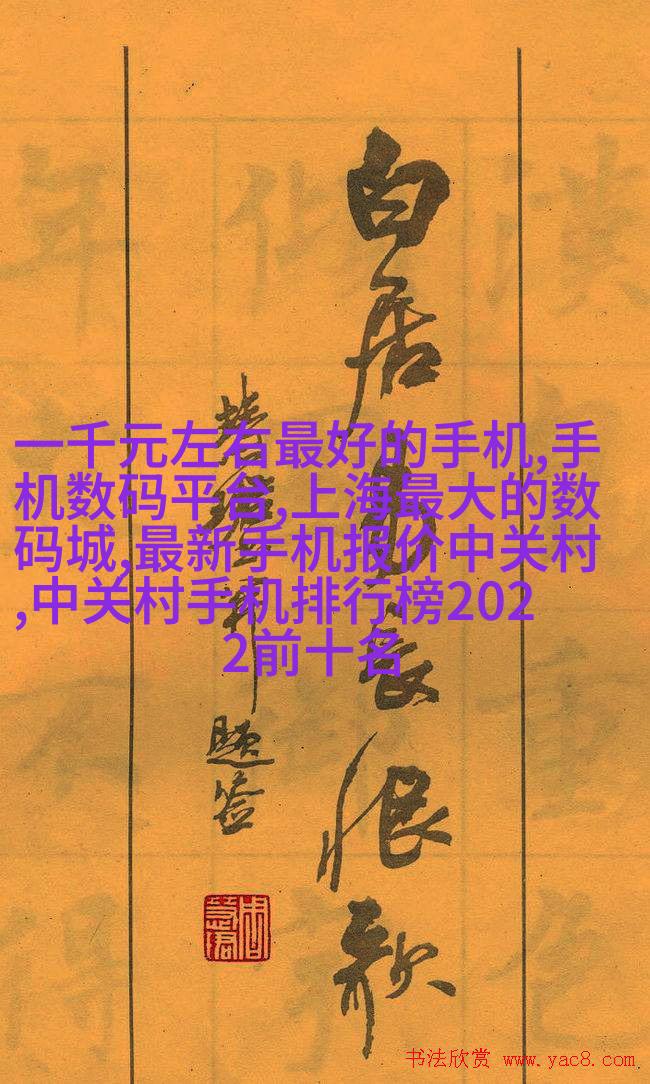 白居易長恨歌
题签
一千元左右最好的手机,手
机数码平台,上海最大的数
码城,最新手机报价中关村
,中关村手机排行榜202
2前十名
书法欣赏 www.yac8.com